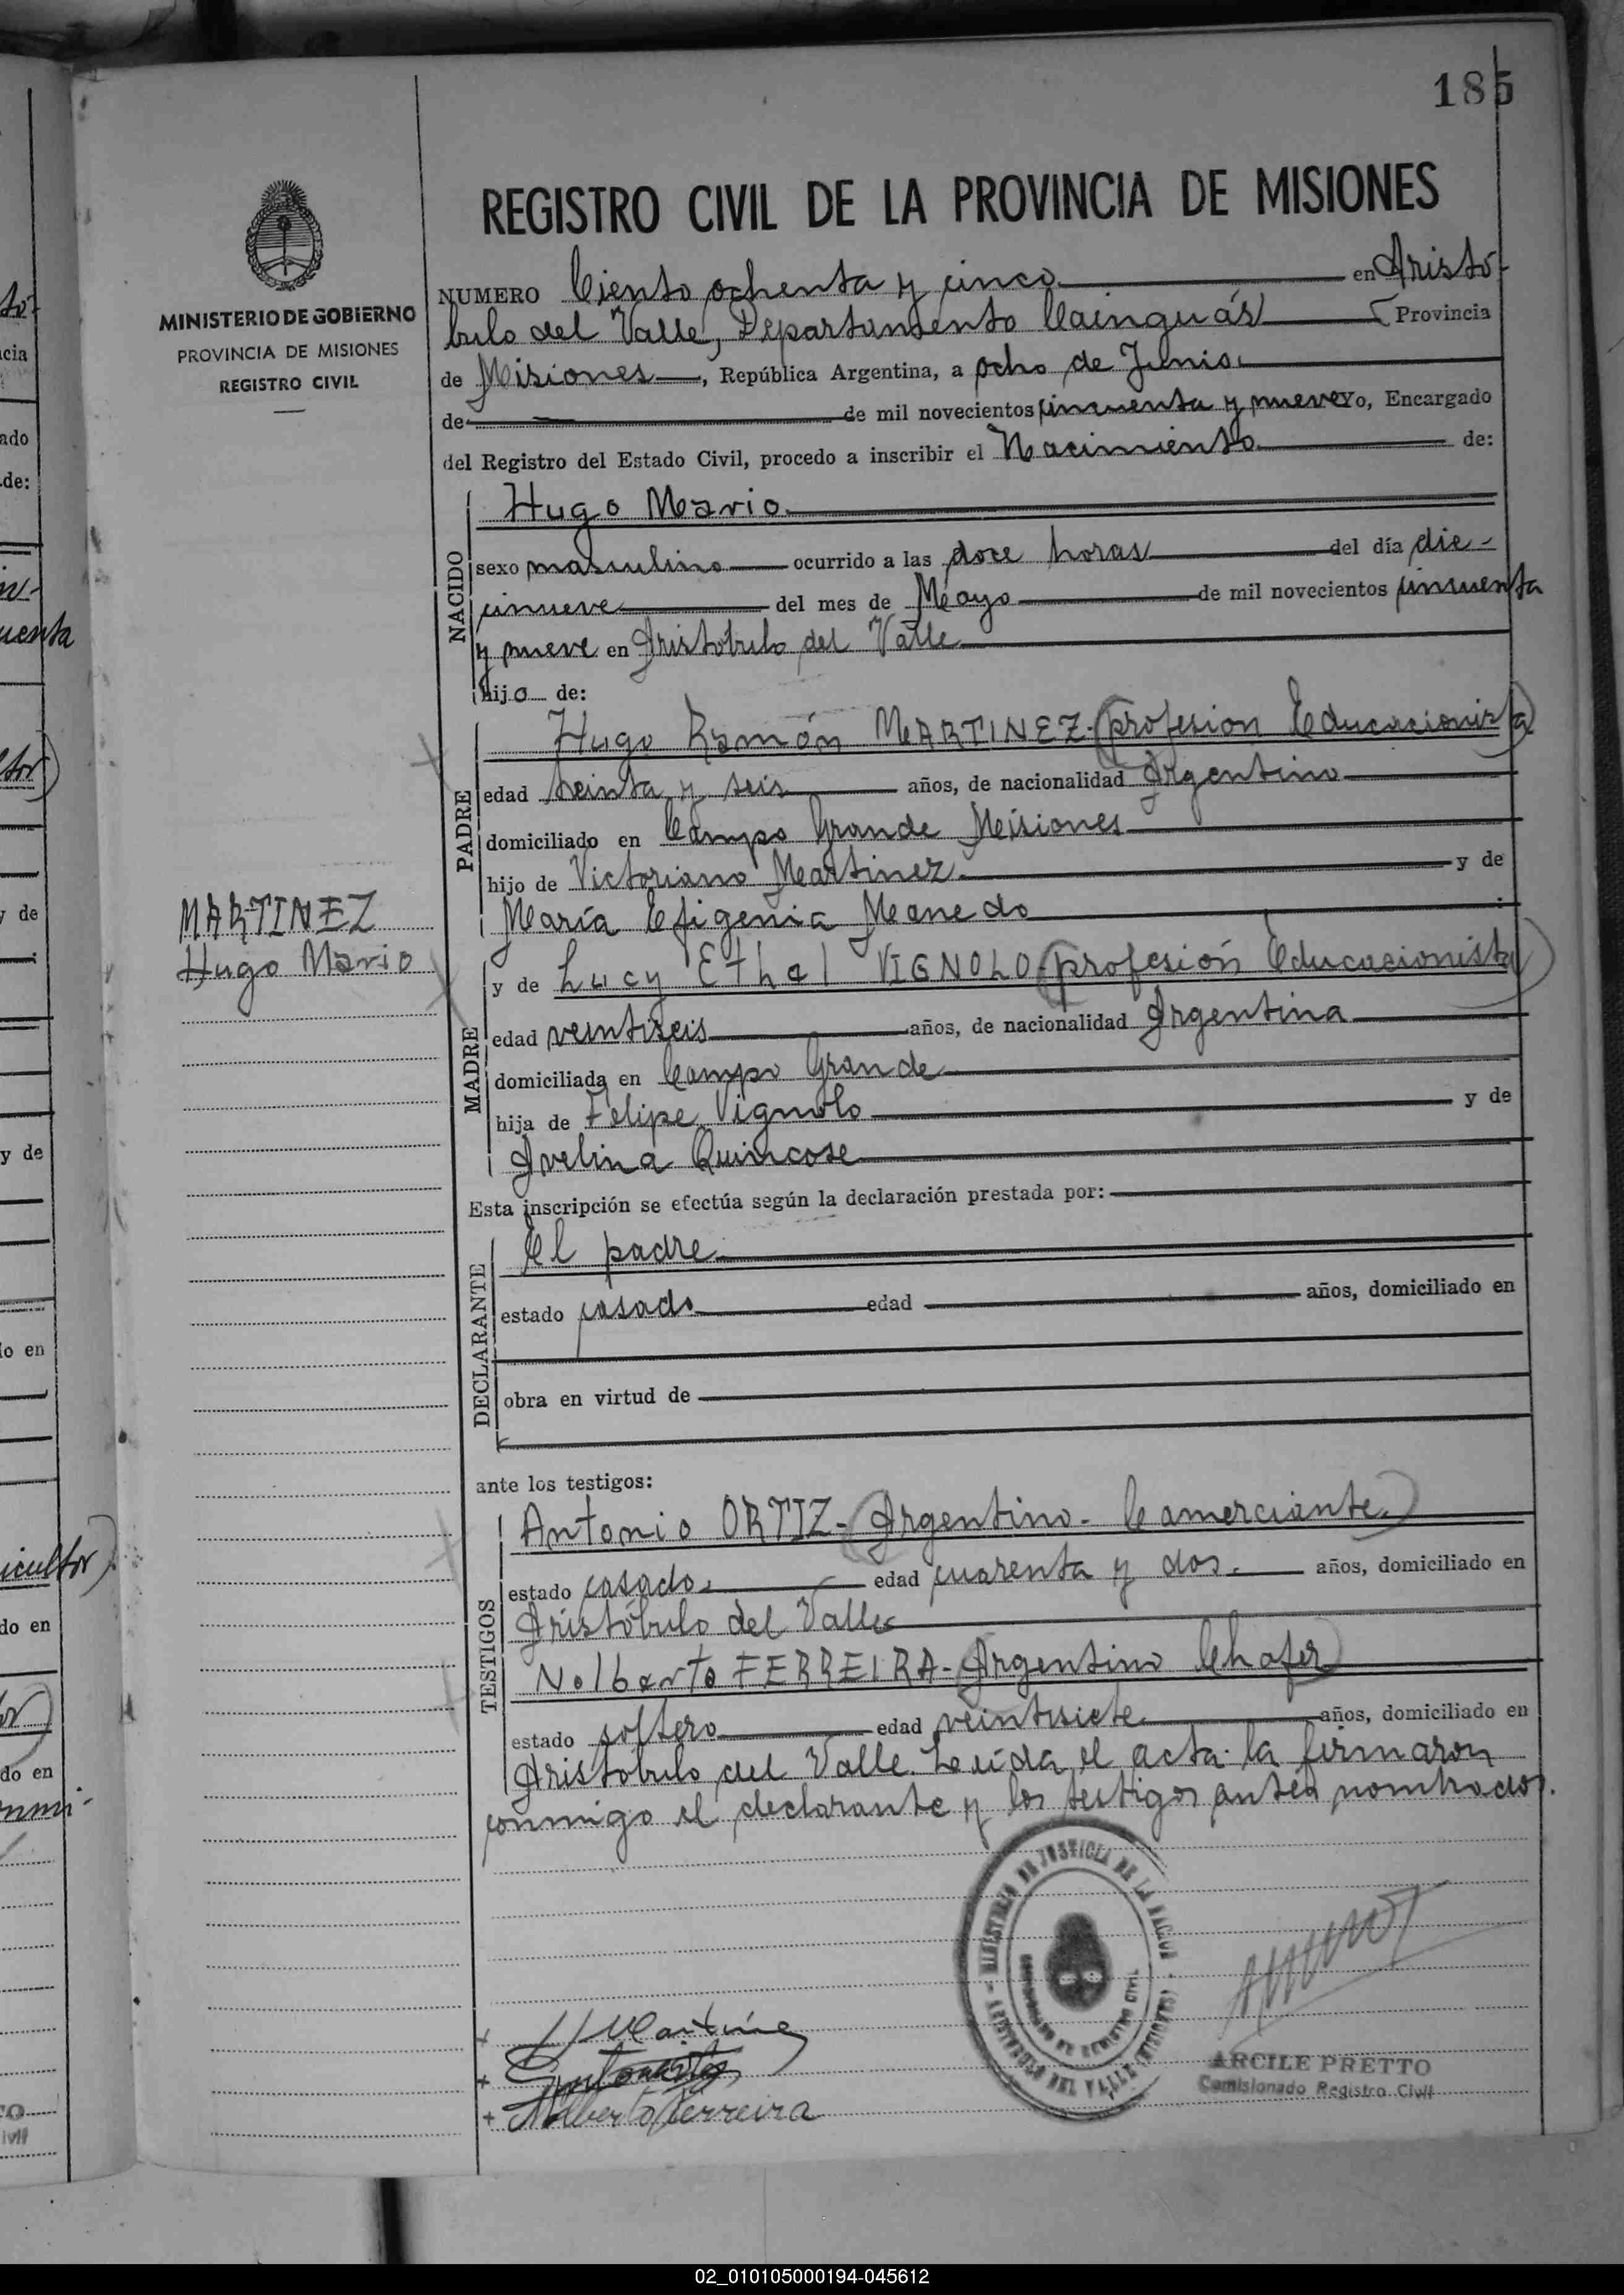 185
REGISTRO CIVIL DE LA PROVINCIA DE MISIONES
MINISTERIO DE GOBIERNO
PROVINCIA DE MISIONES
REGISTRO CIVIL
NUMERO Ciento ochenta y cinco en Aristó-
bulo del Valle, Departamento Cainguás Provincia
de Misiones, República Argentina, a ocho de Junio
de de mil novecientos cincuenta y nueve Yo, Encargado
del Registro del Estado Civil, procedo a inscribir el Nacimiento de:
NACIDO
Hugo Mario
sexo masculino ocurrido a las doce horas del día die-
cinueve del mes de Mayo de mil novecientos cincuenta
y nueve en Aristobulo del Valle
hijo de:
PADRE
Hugo Ramón MARTINEZ-(profesion Educacionista)
edad treinta y seis años, de nacionalidad Argentino
domiciliado en Campo Grande Misiones
hijo de Victoriano Martinez y de
María Efigenia
MARTINEZ
Hugo Mario
MADRE
y de Lucy Ethel VIGNOLO-(profesión Educacionista)
edad veintiseis años, de nacionalidad Argentina
domiciliada en Campo Grande
hija de Felipe Vignolo y de
Avelina Quincose
Esta inscripción se efectúa según la declaración prestada por:
DECLARANTE
El padre
estado casado edad años, domiciliado en
obra en virtud de
ante los testigos:
TESTIGOS
Antonio ORTIZ-(Argentino- Comerciante)
estado casado edad cuarenta y dos años, domiciliado en
Aristóbulo del Valle
Nolberto FERREIRA-(Argentino Chofer)
estado soltero edad veintisiete años, domiciliado en
Aristobulo del Valle. Leída el acta la firmaron
conmigo el declarante y los testigos antes nombrados.
MINISTERIO DE JUSTICIA DE LA NACION
ARISTOBULO DEL VALLE (MISIONES)
DE REGISTRO CIVIL
H Martinez
Nolberto Ferreira
ARCILE PRETTO
Comisionado Registro Civil
02_010105000194-045612